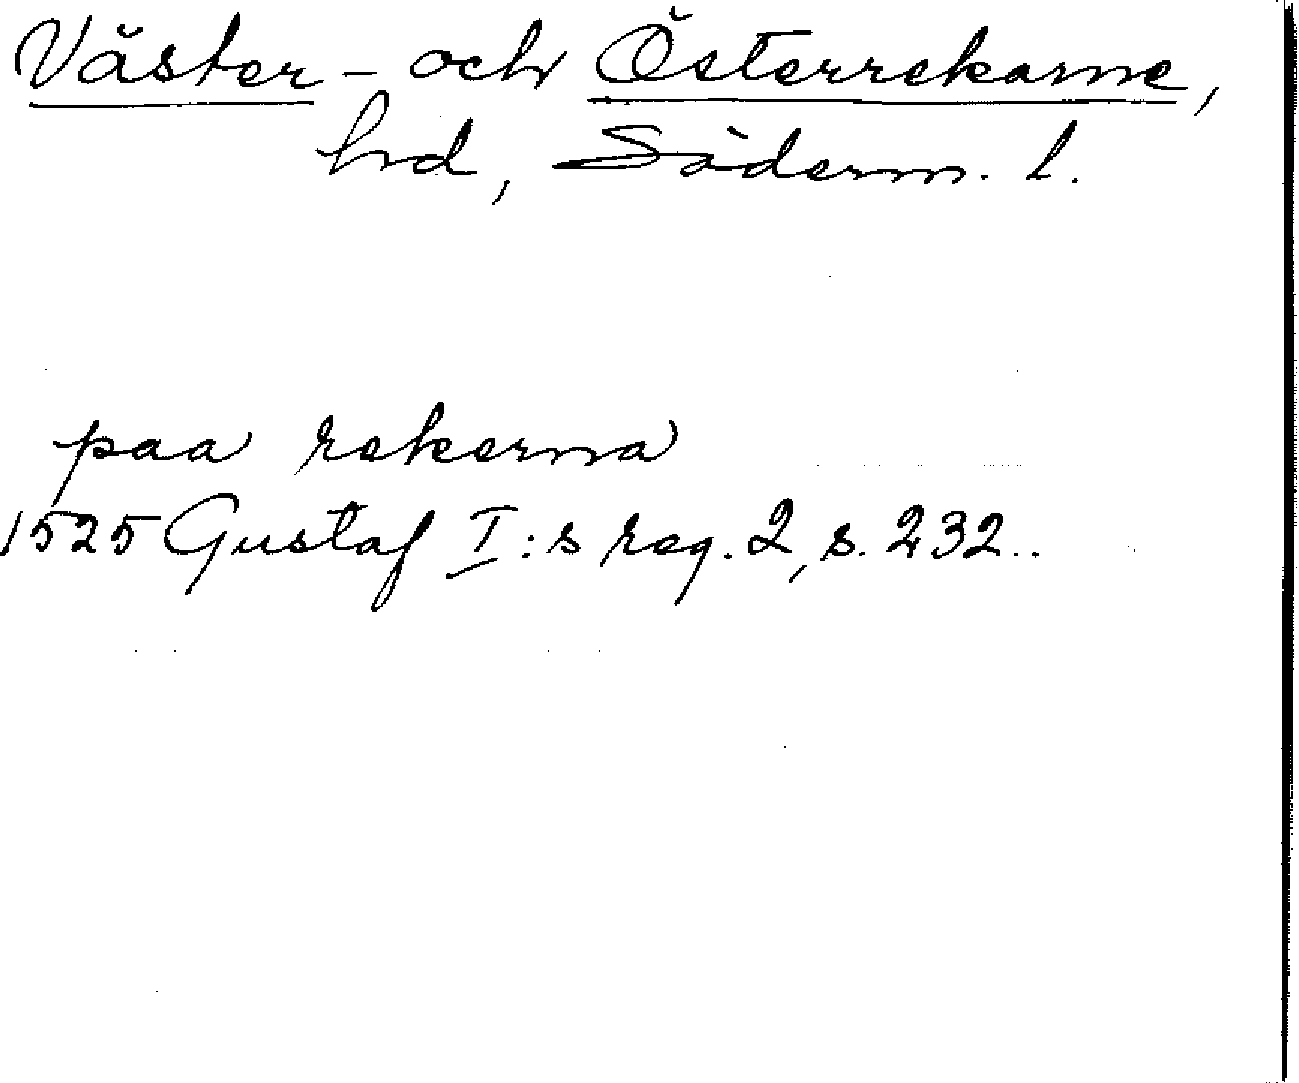 Väster- och Österrekarne,
hrd, Söderm. l.
paa rekerna
1525 Gustaf I:s reg. 2, s. 232..